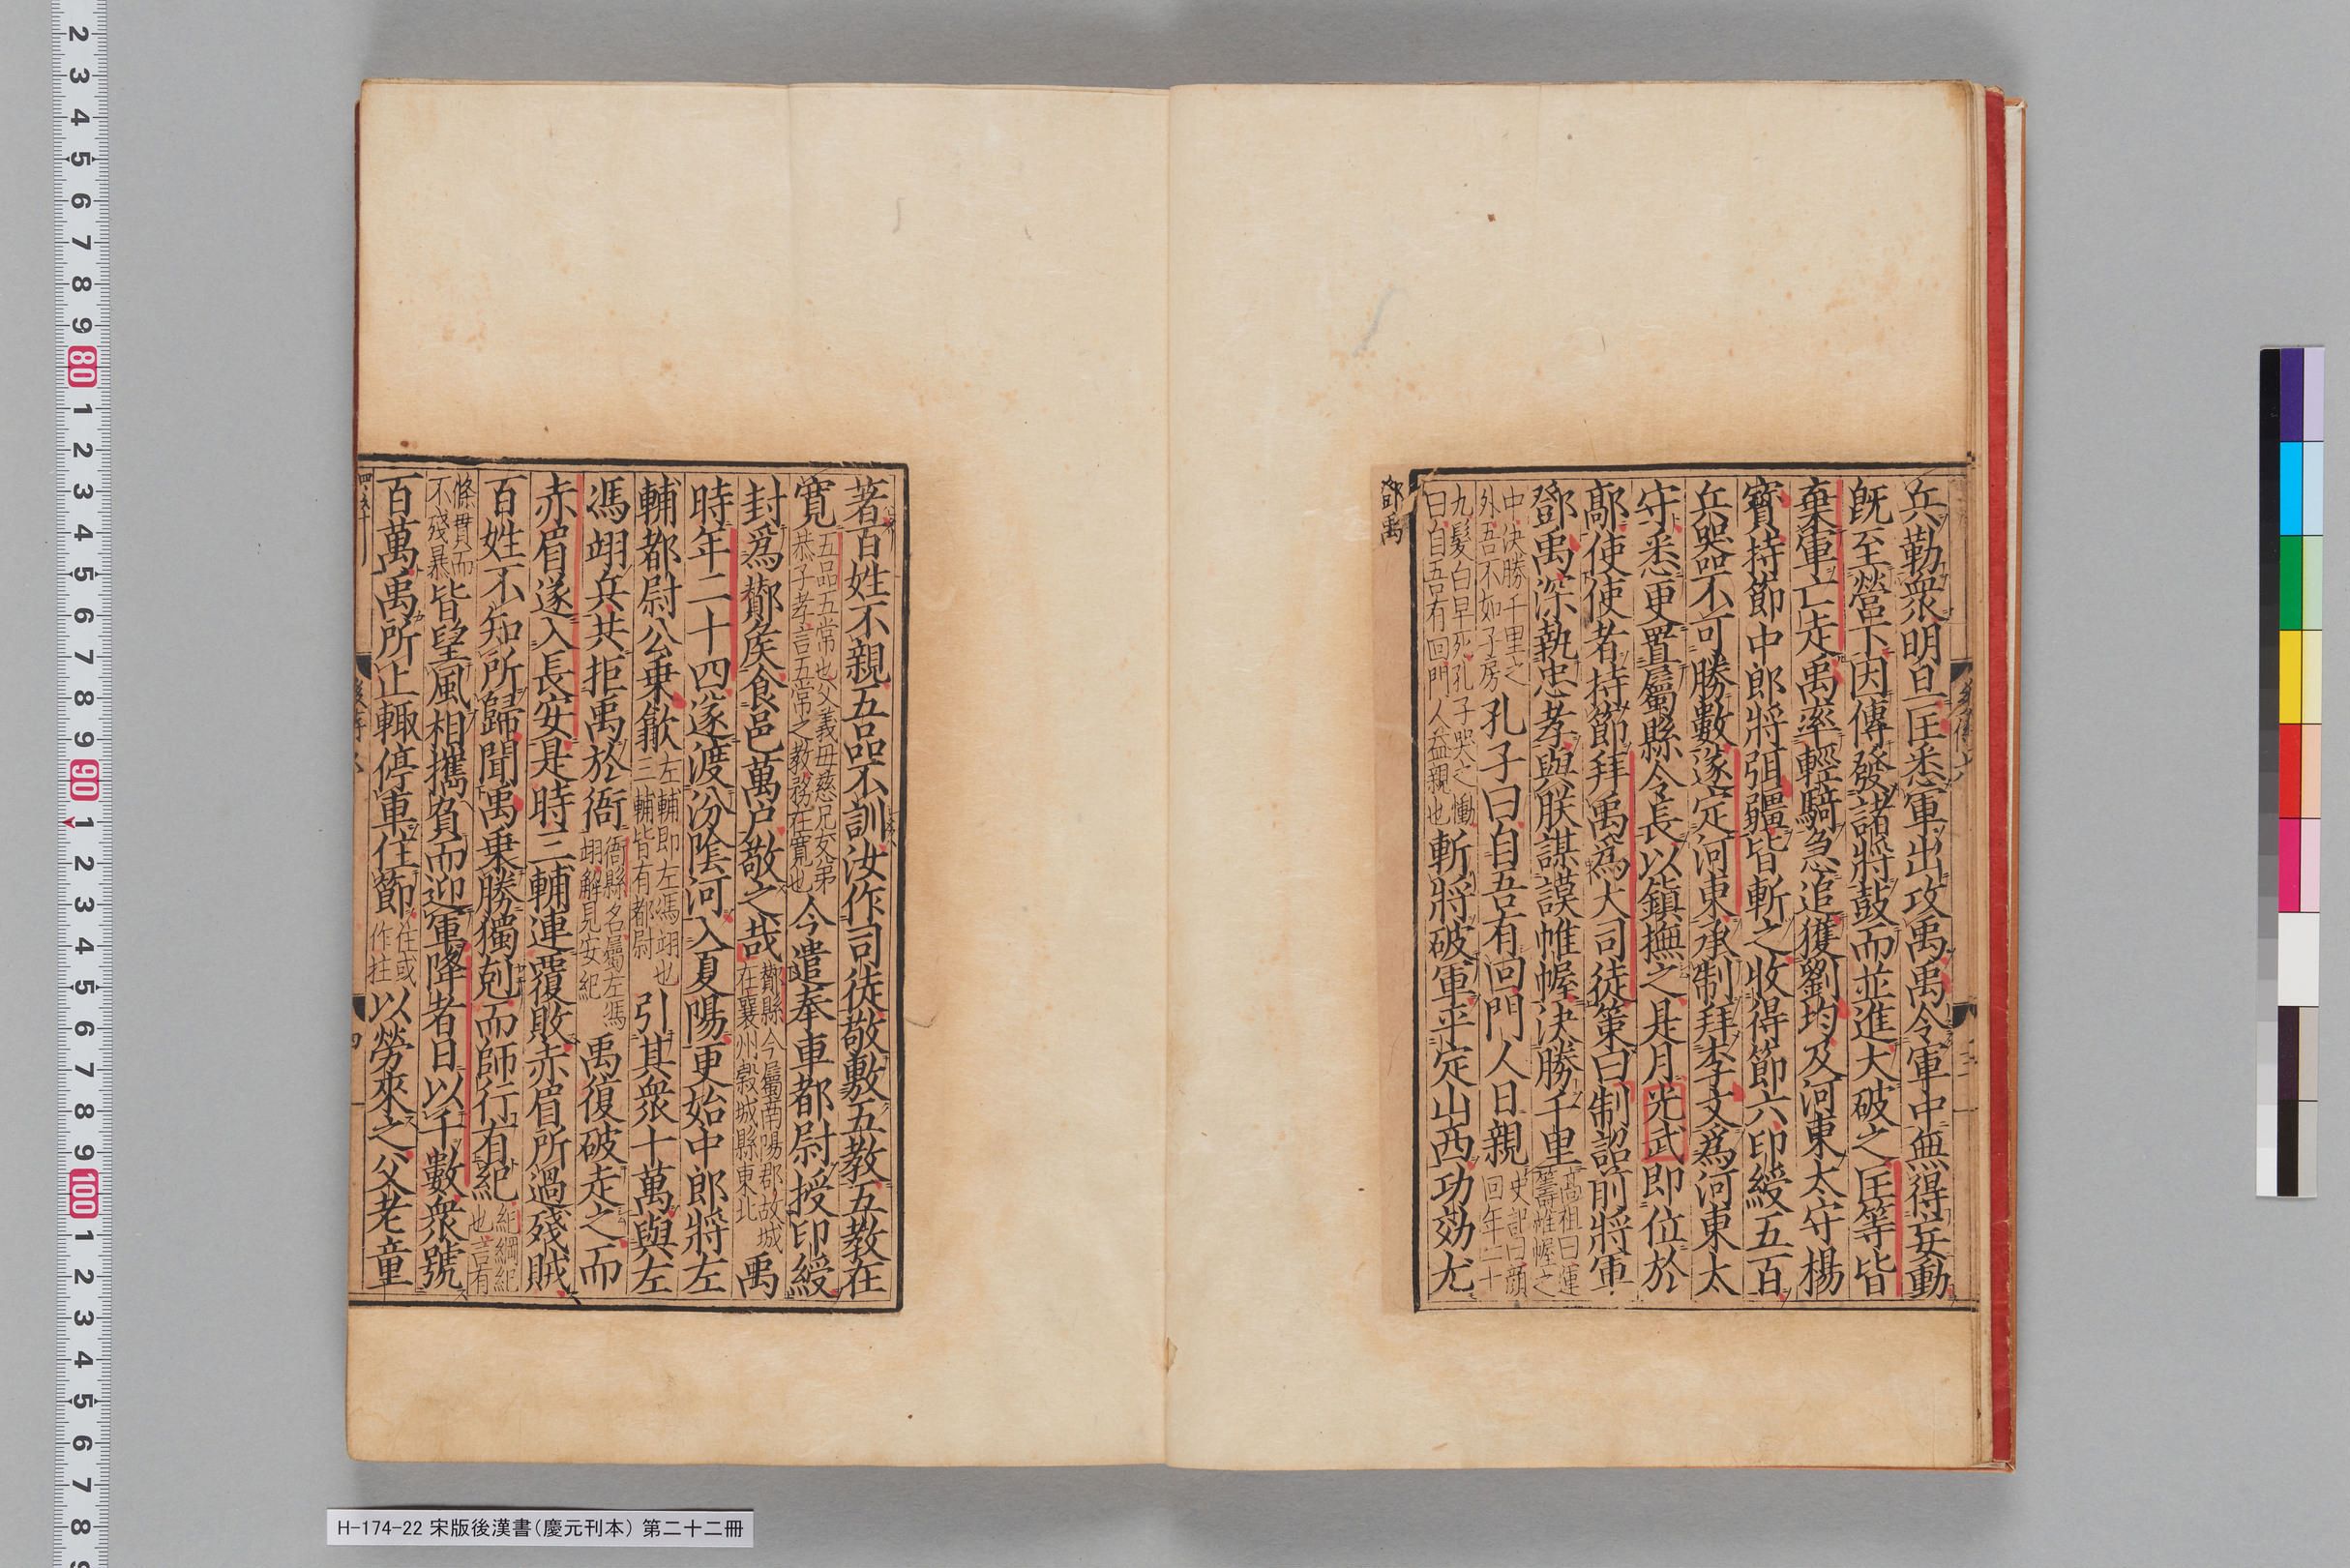 兵勒衆明旦匡悉軍出攻禹禹令軍中無得妄動
旣至營下因傳發諸將鼓而並進大破之匡等皆
棄軍亡走禹率輕騎急追獲劉均及河東太守楊
寶持節中郎將弭彊皆斬之收得節六印綬五百
兵器不可勝數遂定河東承制拜李文爲河東太
守悉更置屬縣令長以鎮撫之是月光武即位於
鄗使使者持節拜禹爲大司徒策曰制詔前將軍
鄧禹深執忠孝與朕謀謨帷幄決勝千里高祖曰運
籌帷幄之
中決勝千里之
外吾不如子房孔子曰自吾有回門人日親史記曰顔
回年二十
九髮白早死孔子哭之慟
曰自吾有回門人益親也斬將破軍平定山西功効尤
鄧禹
著百姓不親五品不訓汝作司徒敬敷五教五教在
寬五品五常也父義母慈兄友弟
恭子孝言五常之教務在寬也今遣奉車都尉授印綬
封爲酇侯食邑萬戶敬之哉酇縣今屬南陽郡故城
在襄州穀城縣東北禹
時年二十四遂渡汾陰河入夏陽更始中郎將左
輔都尉公乗歙左輔即左馮翊也
三輔皆有都尉引其衆十萬與左
馮翊兵共拒禹於衙衙縣名屬左馮
翊解見安紀禹復破走之而
赤眉遂入長安是時三輔連覆敗赤眉所過殘賊
百姓不知所歸聞禹乗勝獨剋而師行有紀紀綱紀
也言有
條貫而
不殘暴皆望風相攜負而迎軍降者日以千數衆號
百萬禹所止輙停車住節住或
作拄以勞來之父老童
H-174-22 宋版後漢書（慶元刊本） 第二十二冊
2
3
4
5
6
7
8
9
80
1
2
3
4
5
6
7
8
9
90
1
2
3
4
5
6
7
8
9
100
1
2
3
4
5
6
7
8